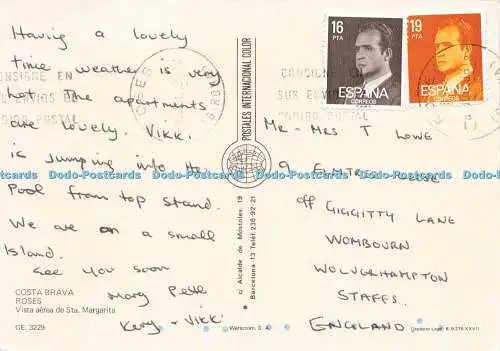 Having a lovely
time weather is very
hot The apartments
are lovely. Vikki
is Jumping into the
Pool from top stand.
We are on a small
Island.
See you soon
Mary Pete
Kerry + Vikki
COSTA BRAVA
ROSES
Vista aérea de Sta. Margarita
GE. 3229
POSTALES INTERNACIONAL COLOR
c/ Alcalde de Móstoles, 19
Barcelona-13 Teléf. 236-92-21
Warscrom, S. A.
16
PTA
ESPAÑA
CORREOS
19
PTA
ESPAÑA
CORREOS
CONSIGNE EN
SUS ENVIOS EL
CODIGO POSTAL
CONSIGNE EN
SUS ENVIOS
CODIGO POSTAL
Mr - Mrs T Lowe
9 ELMTREE CLOSE
off GIGGITTY LANE
WOMBOURN
WOLVERHAMPTON
STAFFS.
ENGLAND
Depósito Legal: B. 9.276-XXVII
Dodo-Postcards Dodo-Postcards Dodo-Postcards Dodo-Postcards